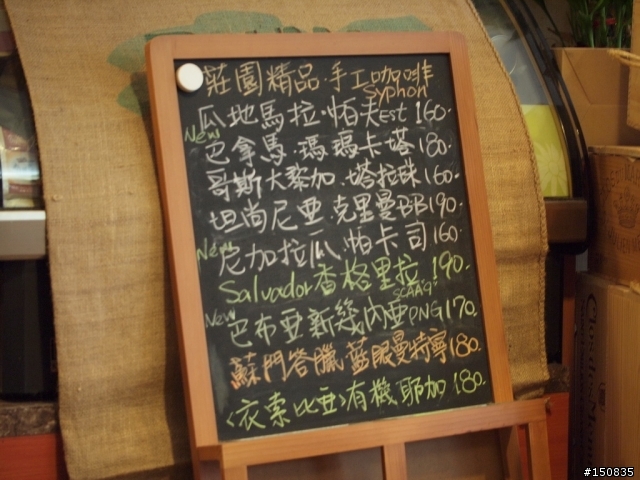 莊園精品·手工咖啡
Syphon
瓜地馬拉·怕夫est 160.
New
巴拿馬·瑪瑪卡塔 180.
哥斯大黎加·塔拉珠 160.
坦尚尼亞·克里曼BB 190.
New
尼加拉瓜·帕卡司 160.
Salvador 香格里拉 190.
SCAA 9"
New
巴布亞新幾內亞PNG 170.
蘇門答臘·藍眼曼特寧 180.
<衣索比亞>有機耶加 180.
#150835